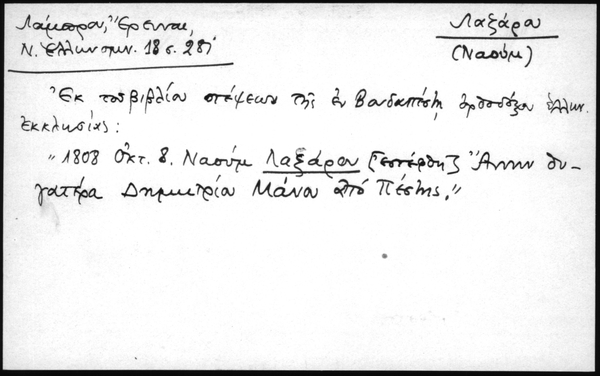 Λάμπρου, Ἔρευναι,
Ν. Ἑλληνομν. 18 σ. 281
Λαζάρου
(Ναούμ)
Ἐκ τοῦ βιβλίου στέψεων τῆς ἐν Βουδαπέστῃ ὀρθοδόξου ἑλλην.
ἐκκλησίας:
"1808 Ὀκτ. 8. Ναούμ Λαζάρου [ἐστέφθη] Ἄννην θυ-
γατέρα Δημητρίου Μάνου ἀπό Πέστης."